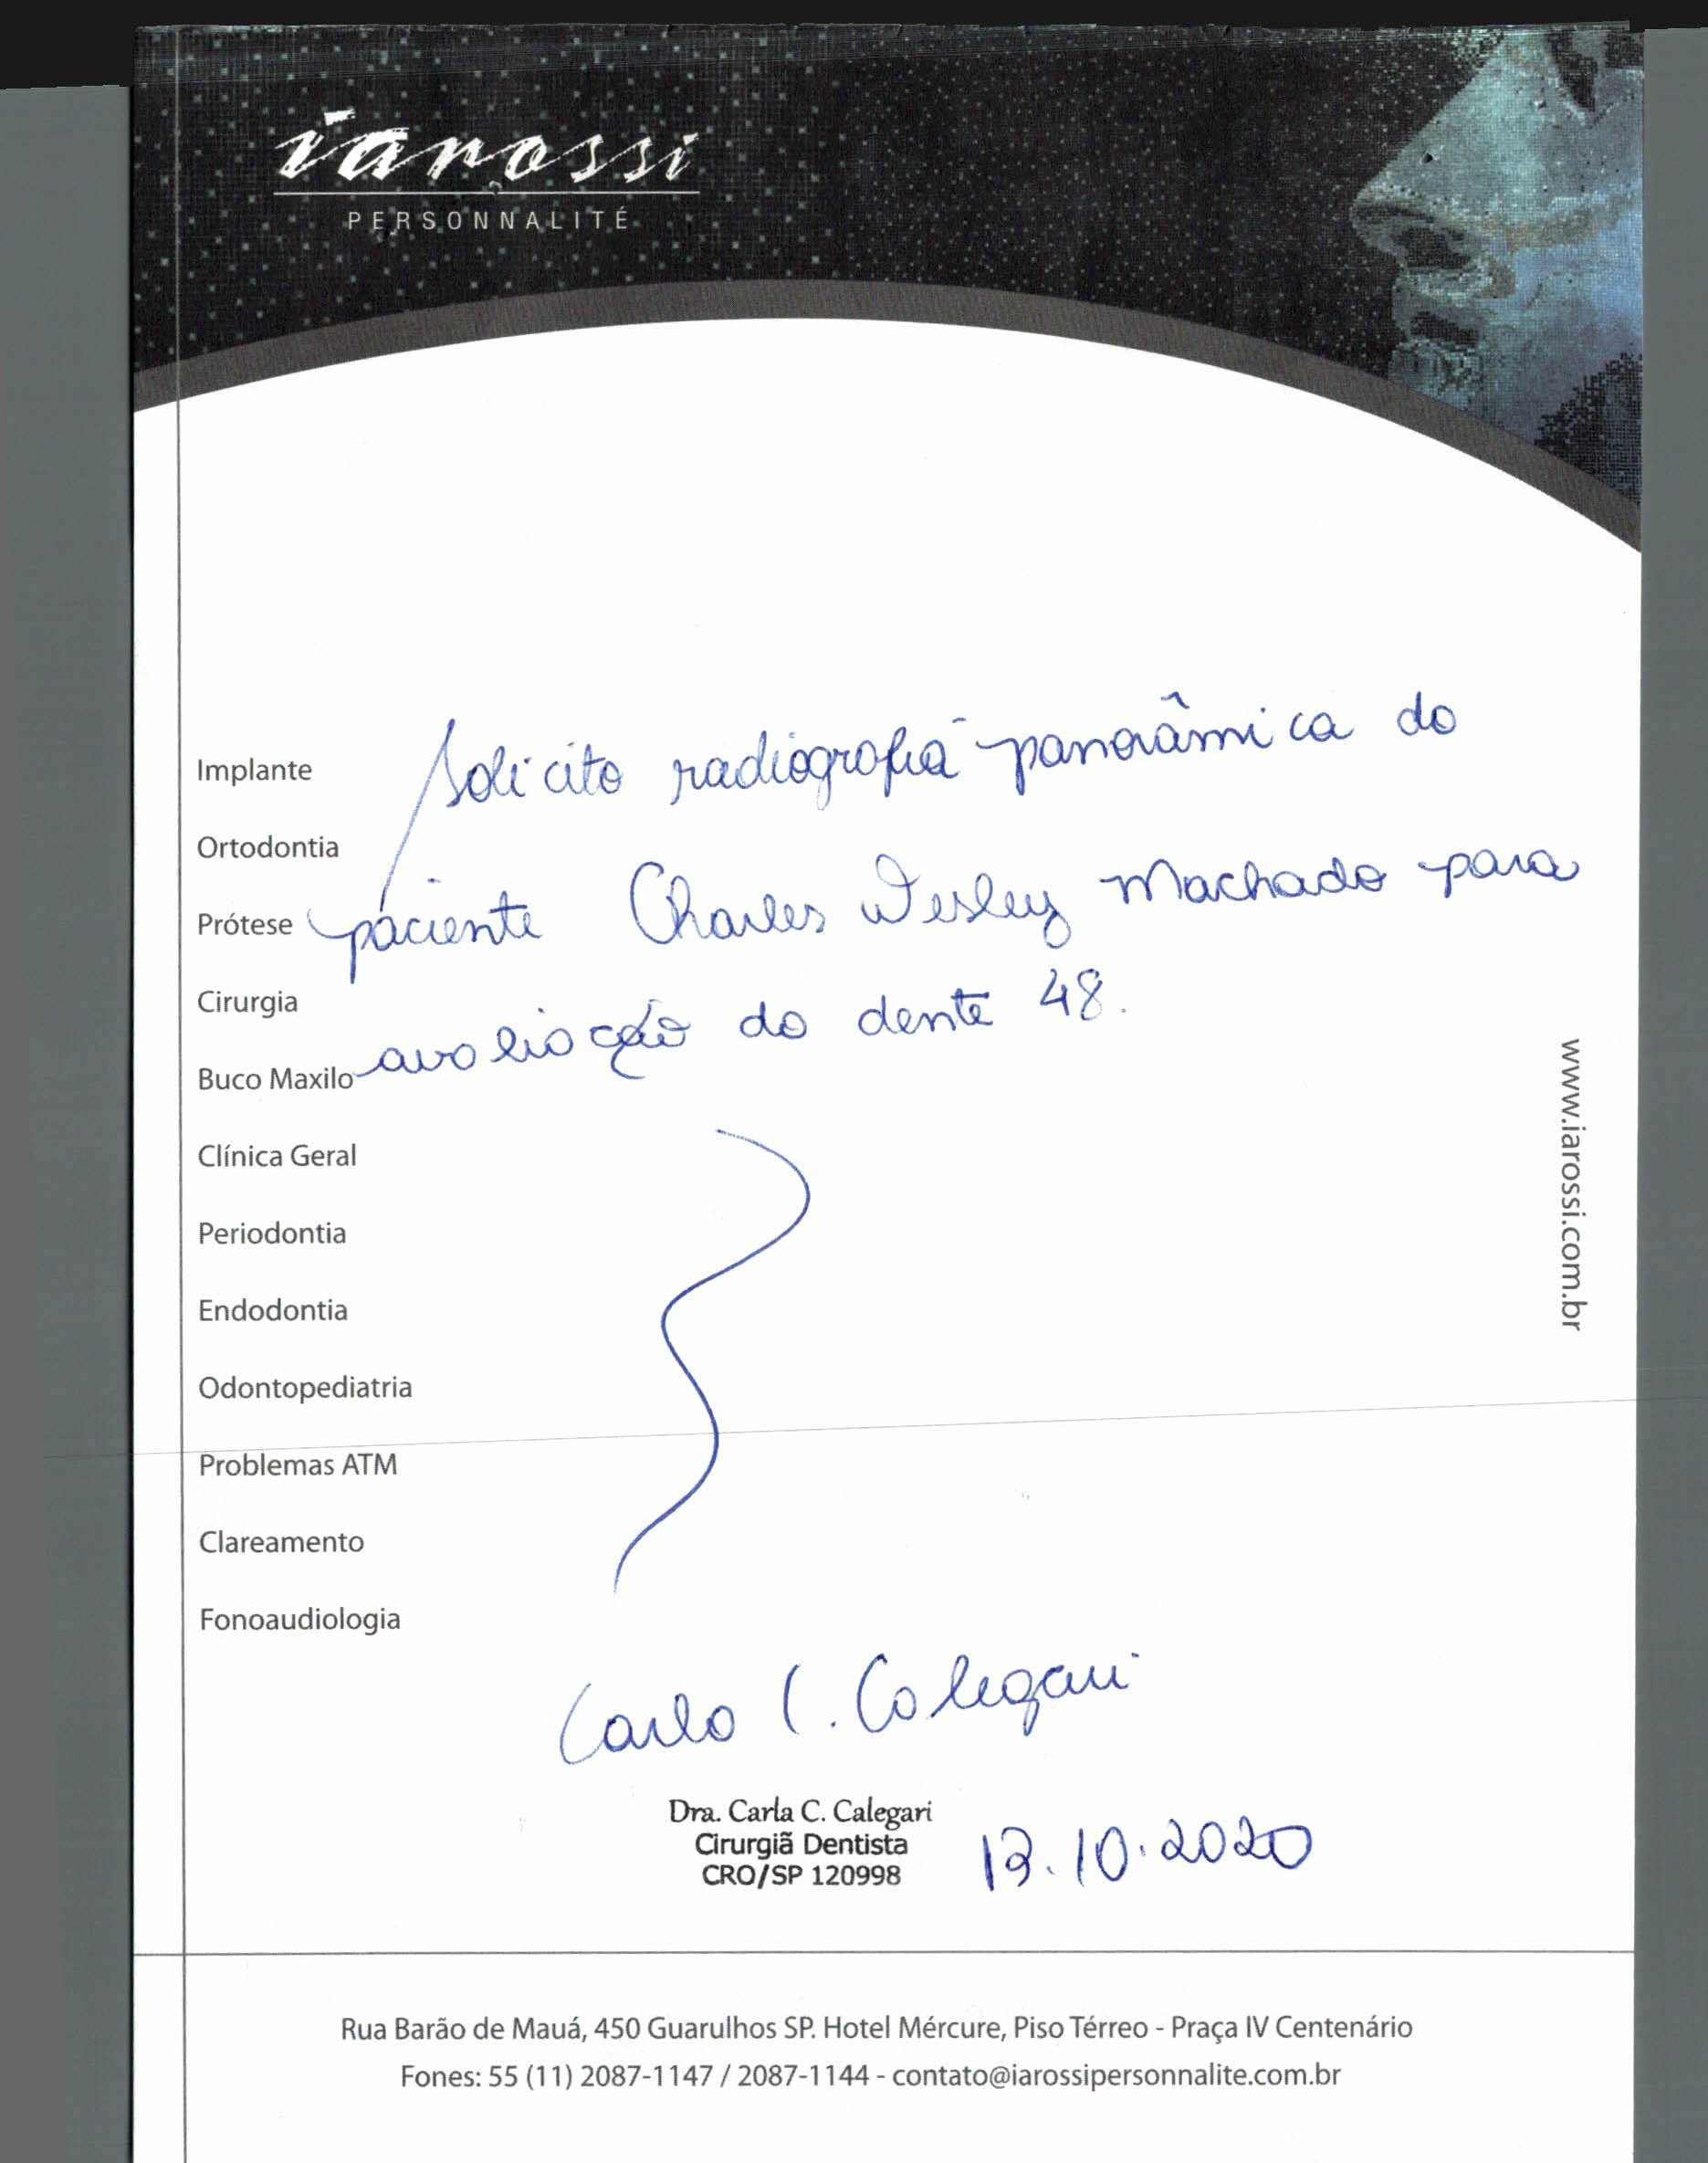 iarossi
PERSONNALITÉ
Implante
Ortodontia
Prótese
Cirurgia
Buco Maxilo
Clínica Geral
Periodontia
Endodontia
Odontopediatria
Problemas ATM
Clareamento
Fonoaudiologia
Solicito radiografia panorâmica do
paciente Charles Wesley Machado para
avaliação do dente 48.
www.iarossi.com.br
Carla C. Calegari
Dra. Carla C. Calegari
Cirurgiã Dentista
CRO/SP 120998
13.10.2020
Rua Barão de Mauá, 450 Guarulhos SP. Hotel Mércure, Piso Térreo - Praça IV Centenário
Fones: 55 (11) 2087-1147 / 2087-1144 - contato@iarossipersonnalite.com.br